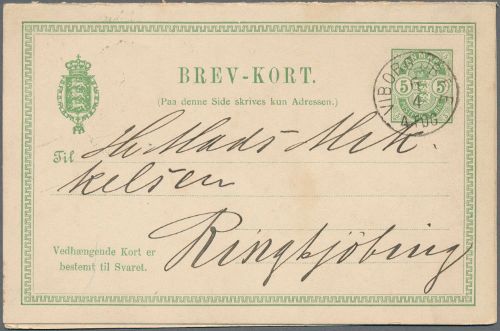 BREV-KORT.
(Paa denne Side skrives kun Adressen.)
5 5
VIBORG
4
Til Hr. Mads Mik-
kelsen
Ringkjøbing
Vedhængende Kort er
bestemt til Svaret.